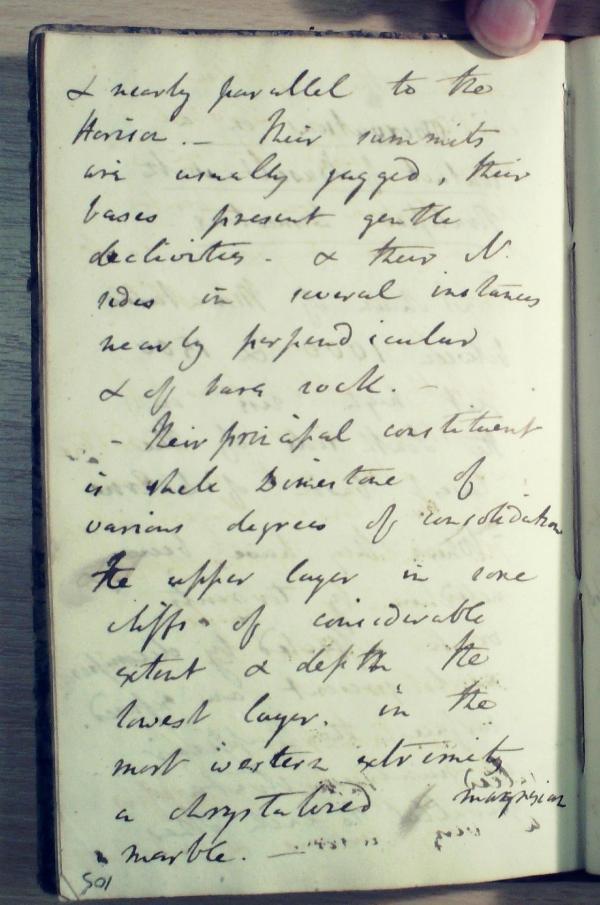 & nearly parallel to the
Horison. - Their summits
are usually jagged, their
bases present gentle
declivities - & their N.
sides in several instances
nearly perpendicular
& of bare rock. -
- Their principal constituent
is shele Limestone of
various degrees of consolidation
the upper layer in some
cliffs of considerable
extent & depth the
lowest layer. in the
most western extremity
a chrystalized magnesian
marble.
501